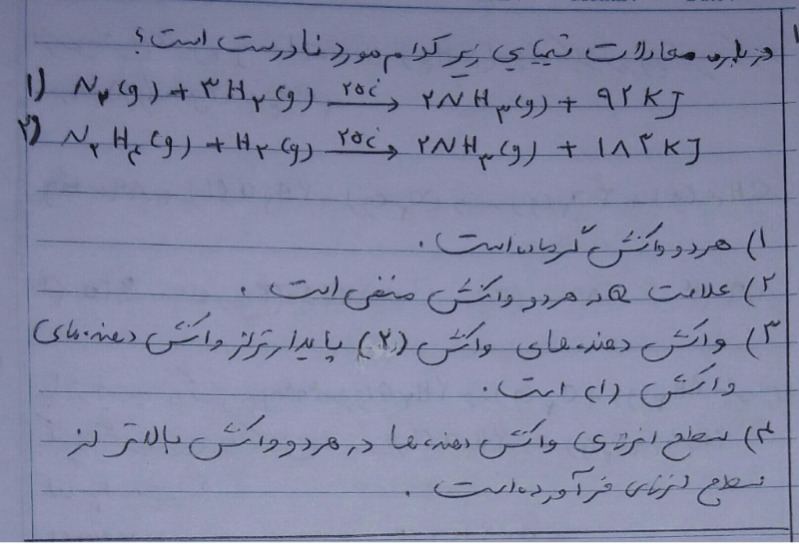 درباره معادلات شیمیایی زیر کدام مورد نادرست است؟
۱) N۲(g) + ۳H۲(g) ۲۵c → ۲NH۳(g) + ۹۲ KJ
۲) N۲H۴(g) + H۲(g) ۲۵c → ۲NH۳(g) + ۱۸۳ KJ
۱) هر دو واکنش گرماده است.
۲) علامت Q در هر دو واکنش منفی است.
۳) واکنش دهنده های واکنش (۲) پایدارتر از واکنش دهنده های
واکنش (۱) است.
۴) سطح انرژی واکنش دهنده ها در هر دو واکنش بالاتر از
سطح انرژی فرآورده است.